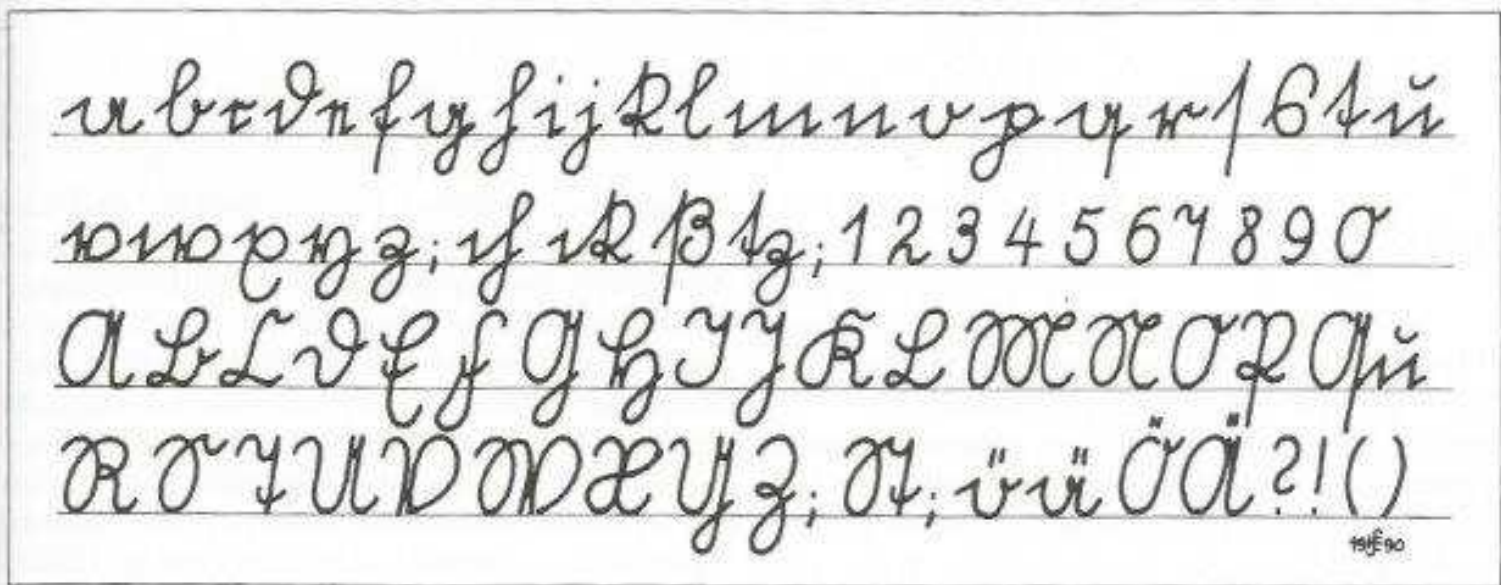 a b c d e f g h i j k l m n o p q r ſ s t u
v w x y z ; ch ck ß tz ; 1 2 3 4 5 6 7 8 9 0
A B C D E F G H I J K L M N O P Qu
R S T U V W X Y Z ; St ; ö ä Ö Ä ? ! ( )